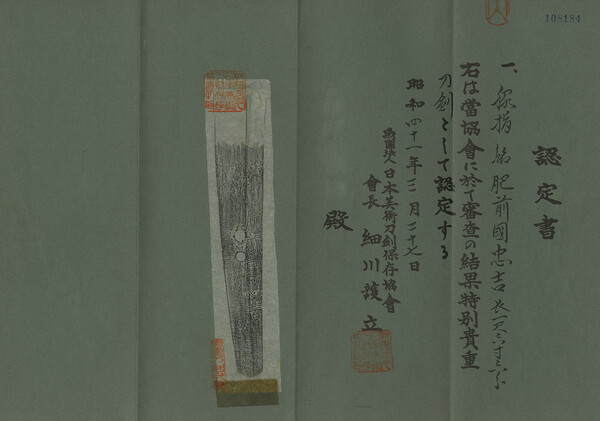 108184
認定書
一、脇指 銘肥前國忠吉 長一尺六寸三分
右は當協會に於て審査の結果特別貴重
刀劍として認定する
昭和四十一年三月二十七日
財團法人日本美術刀劍保存協會
會長 細川護立
殿